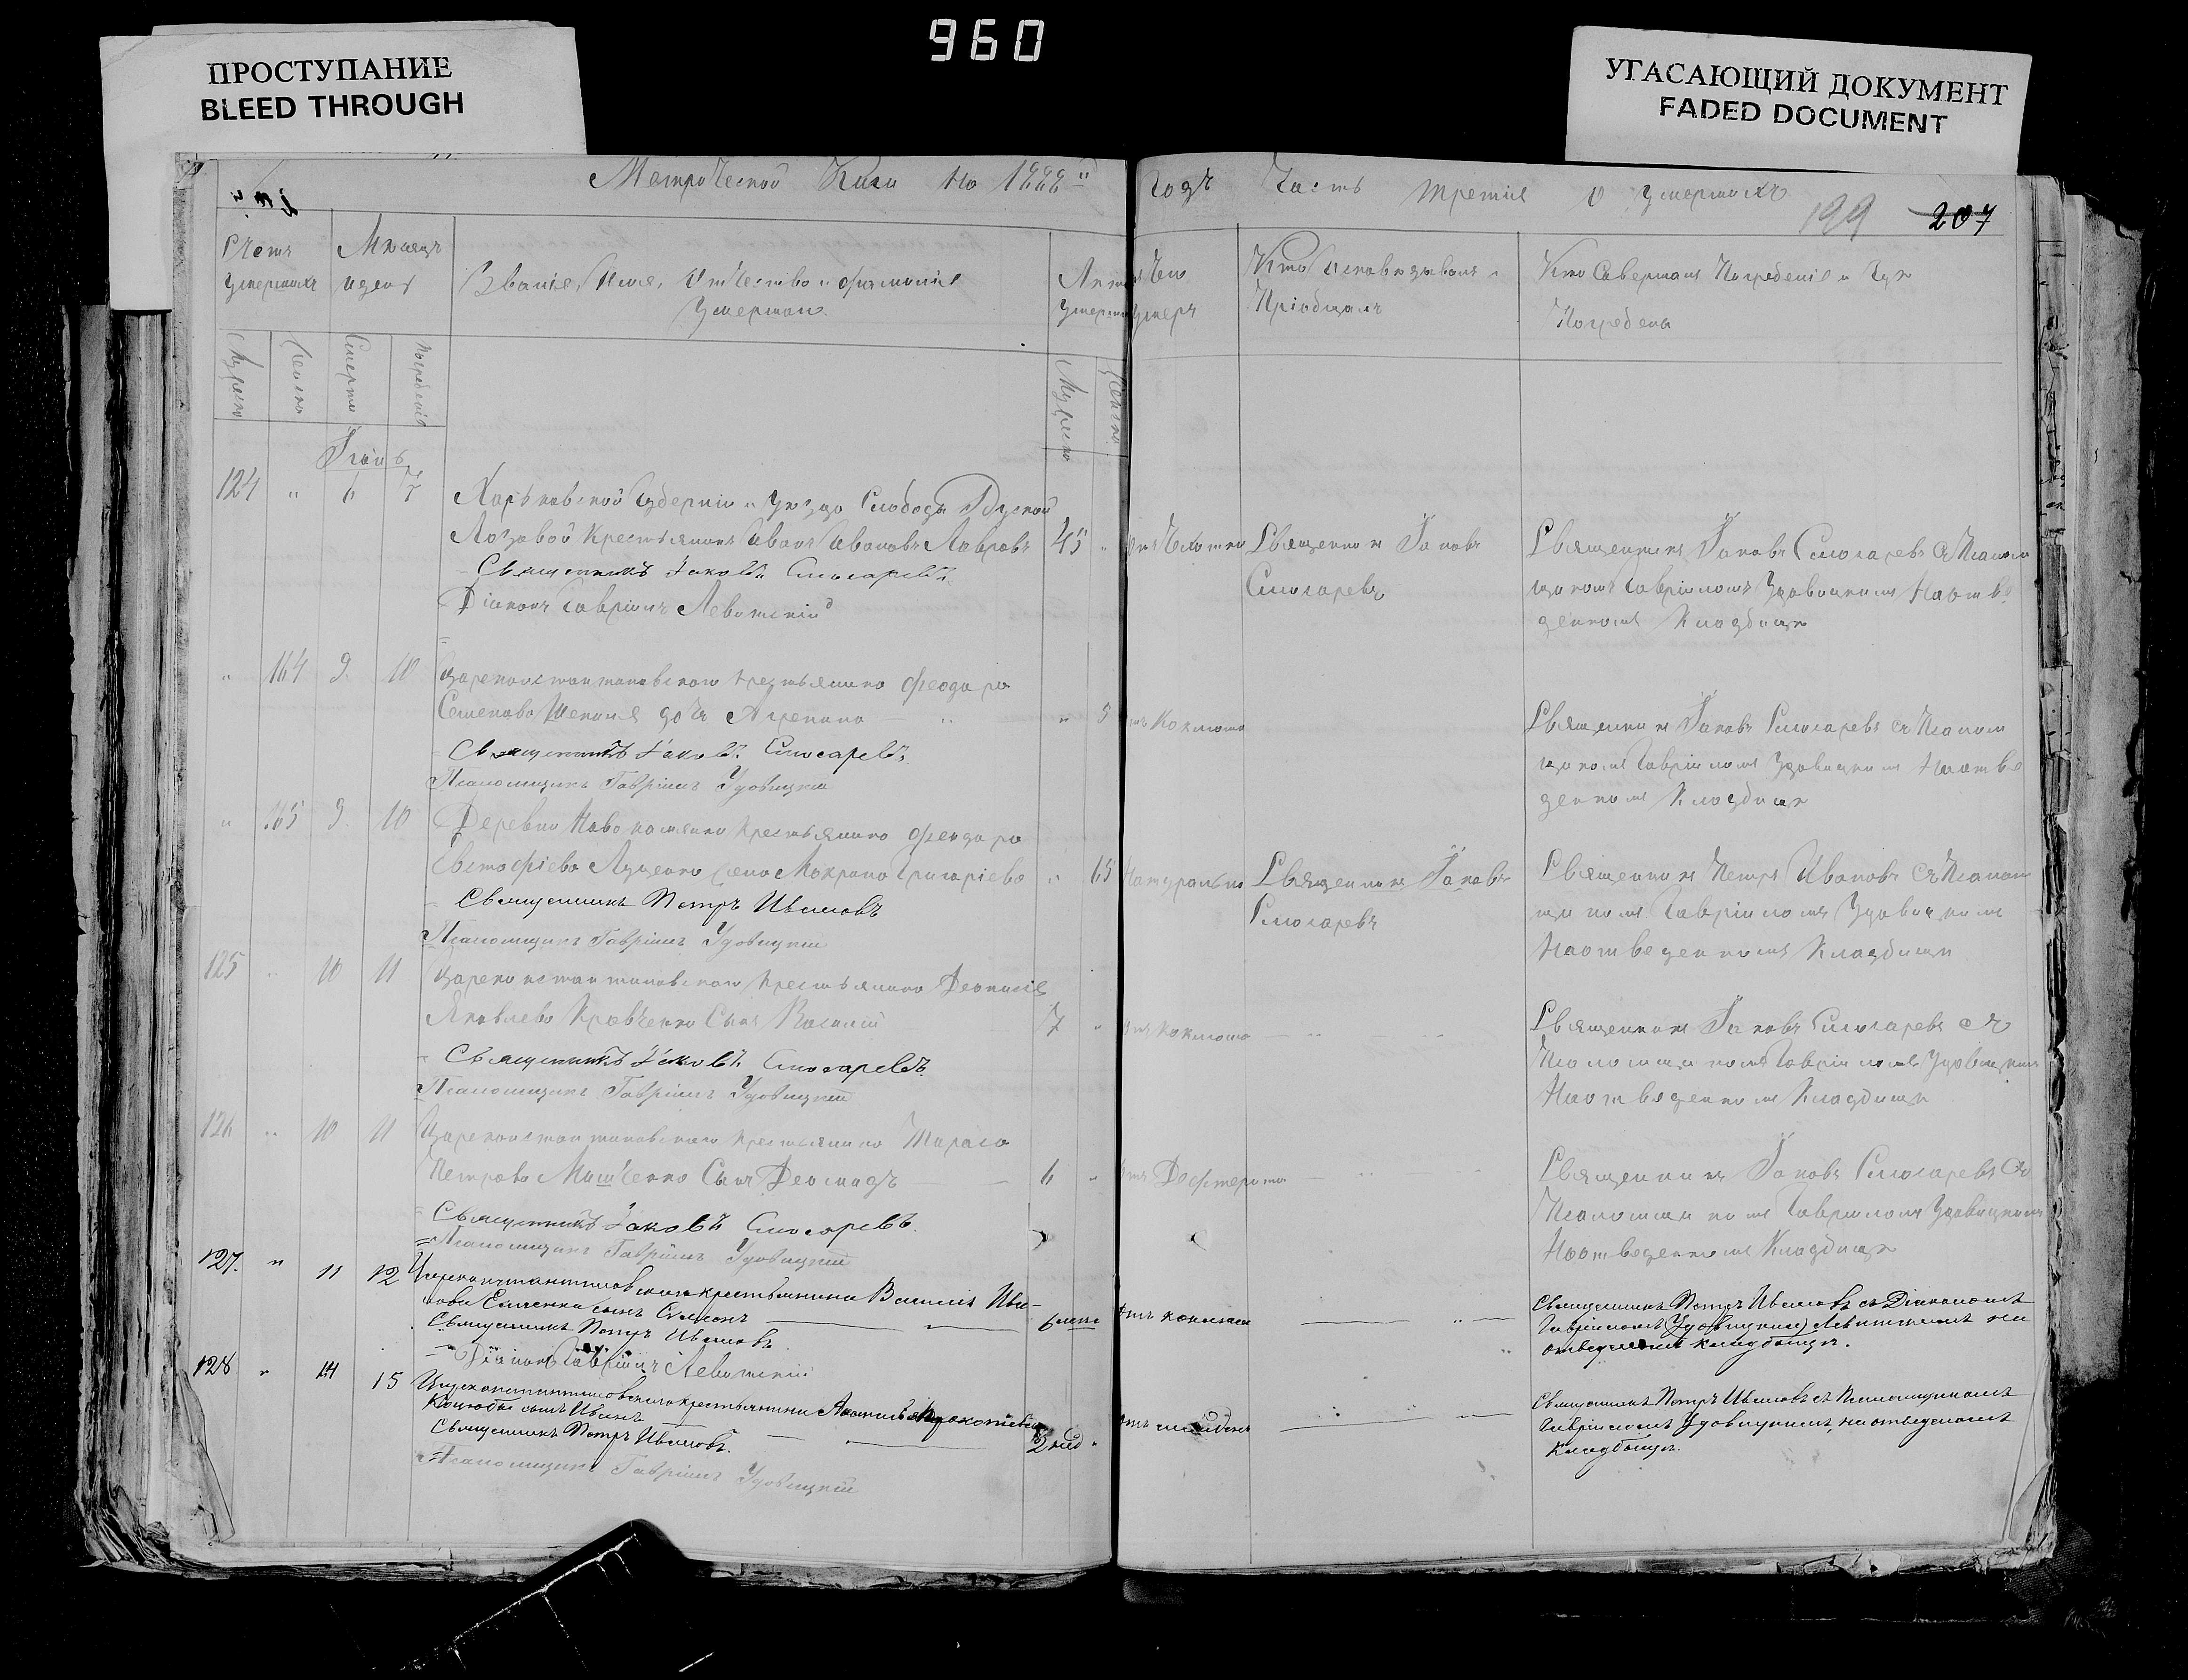 960
ПРОСТУПАНИЕ
BLEED THROUGH
УГАСАЮЩИЙ ДОКУМЕНТ
FADED DOCUMENT
Метрической Книги на 1888й годъ Часть третія о умершихъ
199 207
Счетъ умершихъ
Мѣсяцъ и день
Званіе, Имя, Отчество и фамилія Умершаго
Лѣта умершаго
Отъ чего умеръ
Кто Исповѣдывалъ и Пріобщалъ
Кто Совершалъ Погребеніе и Гдѣ Погребены
Мужеска
Женска
Смерти
Погребенія
Мужеска
Женска
124 " 6 7
Харьковской Губерніи и Уѣзда Слободы Руской
Лозовой Крестьянинъ Иванъ Ивановъ Лавровъ 45 "
Священникъ Іаковъ Слюсаревъ
Священникъ Іаковъ Слюсаревъ
Діаконъ Гавріилъ Левитскій
Священникъ Іаковъ Слюсаревъ съ Псалом
щикомъ Гавріиломъ Удовицкимъ На отве
денномъ Кладбищѣ
" 164 9 10
Цареконстантиновскаго крестьянина Феодора
Семенова дочь " 5
Священникъ Іаковъ Слюсаревъ
Псаломщикъ Гавріилъ Удовицкій
отъ Коклюша
Священникъ Іаковъ Слюсаревъ съ Псалом
щикомъ Гавріиломъ Удовицкимъ На отве
денномъ Кладбищѣ
" 165 9 10
Деревни крестьянина Феодора
Евстафіева Луценко жена Григоріева " 65
Священникъ Петръ Ивановъ
Псаломщикъ Гавріилъ Удовицкій
Натурально
Священникъ Іаковъ
Слюсаревъ
Священникъ Петръ Ивановъ съ Псалом
щикомъ Гавріиломъ Удовицкимъ
На отведенномъ Кладбищѣ
125 " 10 11
Цареконстантиновскаго Крестьянина Деонисія
Яковлева Кравченко Сынъ Василій 7 "
Священникъ Іаковъ Слюсаревъ
Псаломщикъ Гавріилъ Удовицкій
отъ коклюша
Священникъ Іаковъ Слюсаревъ съ
Псаломщикомъ Гавріиломъ Удовицкимъ
На отведенномъ Кладбищѣ
126 " 10 11
Цареконстантиновскаго крестьянина Тараса
Петрова Мащенко Сынъ Деомидъ 6 "
Священникъ Іаковъ Слюсаревъ
Псаломщикъ Гавріилъ Удовицкій
отъ Дефтерита
Священникъ Іаковъ Слюсаревъ съ
Псаломщикомъ Гавріиломъ Удовицкимъ
На отведенномъ Кладбищѣ
127. " 11 12
Цареконстантиновскаго крестьянина Василія Ива-
нова сынъ
Священникъ Петръ Ивановъ
Діаконъ Гавріилъ Левитскій
отъ коклюша
Священникъ Петръ Ивановъ съ Діакономъ
Гавріиломъ (Удовицкимъ) Левитскимъ на
отведенномъ кладбищѣ.
128 " 14 15
Цареконстантиновскаго крестьянина
Коцюбы сынъ Иванъ
Священникъ Петръ Ивановъ.
Псаломщикъ Гавріилъ Удовицкій
Священникъ Петръ Ивановъ съ Псаломщикомъ
Гавріиломъ Удовицкимъ, на отведенномъ
кладбищѣ.